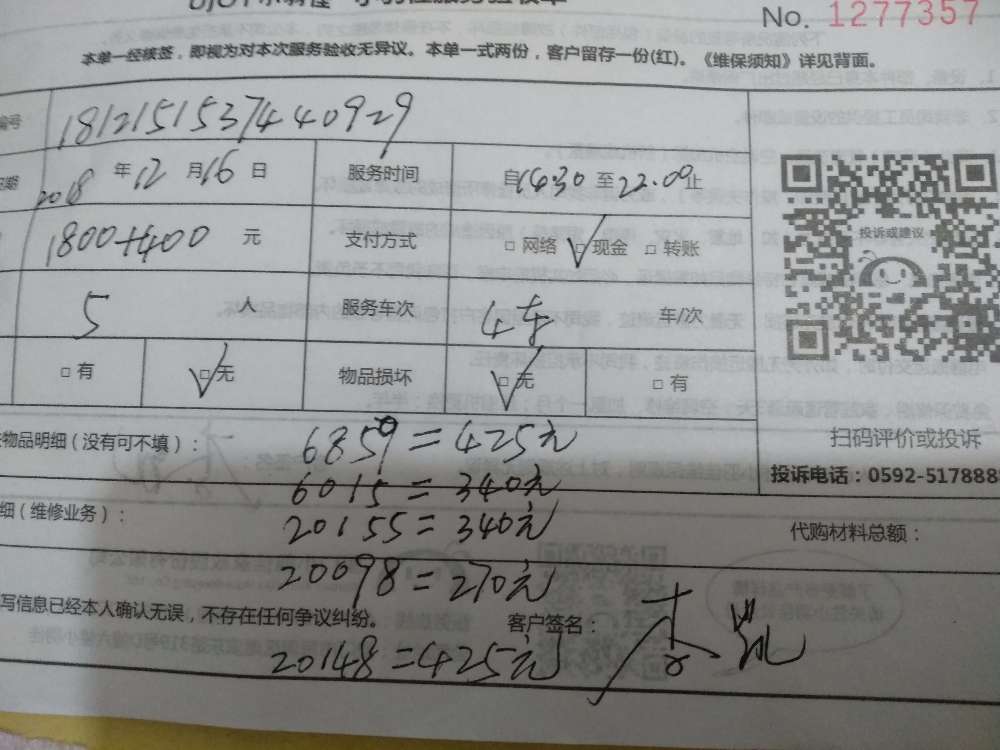 No. 1277357
本单一经核签，即视为对本次服务验收无异议。本单一式两份，客户留存一份(红)。《维保须知》详见背面。
编号 181215153744 40929
2018 年 12 月 16 日 服务时间 自 14:30 至 22:00 止
1800+400 元 支付方式 □ 网络 ☑ 现金 □ 转账
投诉或建议
5 人 服务车次 4车 车/次
□ 有 ☑ 无 物品损坏 ☑ 无 □ 有
扫码评价或投诉
物品明细（没有可不填）： 6859=425元
投诉电话：0592-5178888
6015=340元
细（维修业务）： 20155=340元
代购材料总额：
20098=270元
写信息已经本人确认无误，不存在任何争议纠纷。 客户签名：
20148=425元